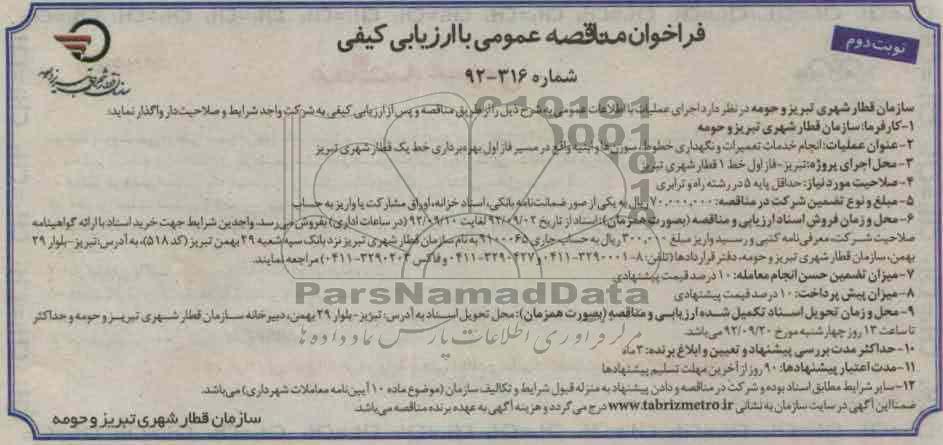 نوبت دوم
فراخوان مناقصه عمومی با ارزیابی کیفی
شماره ۳۱۶-۹۲
سازمان قطار شهری تبریز و حومه
سازمان قطار شهری تبریز و حومه در نظر دارد اجرای عملیات با اطلاعات عمومی به شرح ذیل را از طریق مناقصه و پس از ارزیابی کیفی به شرکت واجد شرایط و صلاحیت‌دار واگذار نماید:
۱-کارفرما: سازمان قطار شهری تبریز و حومه
۲-عنوان عملیات: انجام خدمات تعمیرات و نگهداری خطوط، سوزن‌ها و ابنیه واقع در مسیر فاز اول بهره‌برداری خط یک قطار شهری تبریز
۳-محل اجرای پروژه: تبریز-فاز اول خط ۱ قطار شهری تبریز
۴-صلاحیت مورد نیاز: حداقل پایه ۵ در رشته راه و ترابری
۵-مبلغ و نوع تضمین شرکت در مناقصه: ۷۰,۰۰۰,۰۰۰ ریال به یکی از صور ضمانت‌نامه بانکی، اسناد خزانه، اوراق مشارکت یا واریز به حساب
۶-محل و زمان فروش اسناد ارزیابی و مناقصه (بصورت همزمان): اسناد از تاریخ ۹۲/۰۹/۰۲ لغایت ۹۲/۰۹/۱۰ (در ساعات اداری) بفروش می‌رسد. واجدین شرایط جهت خرید اسناد با ارائه گواهینامه
صلاحیت شرکت، معرفی‌نامه کتبی و رسید واریز مبلغ ۳۰۰,۰۰۰ ریال به حساب جاری ۹۱۰۰۰۶۵ به نام سازمان قطار شهری تبریز نزد بانک سپه شعبه ۲۹ بهمن تبریز (کد ۵۱۸)، به آدرس: تبریز-بلوار ۲۹
بهمن، سازمان قطار شهری تبریز و حومه، دفتر قراردادها (تلفن: ۸-۳۲۹۰۰۰۱-۰۴۱۱ و ۳۲۹۰۴۲۷-۰۴۱۱ و فاکس ۳۲۹۰۲۰۳-۰۴۱۱) مراجعه نمایند.
۷-میزان تضمین حسن انجام معامله: ۱۰ درصد قیمت پیشنهادی
۸-میزان پیش پرداخت: ۱۰ درصد قیمت پیشنهادی
۹-محل و زمان تحویل اسناد تکمیل شده ارزیابی و مناقصه (بصورت همزمان): محل تحویل اسناد به آدرس: تبریز-بلوار ۲۹ بهمن، دبیرخانه سازمان قطار شهری تبریز و حومه و حداکثر
تا ساعت ۱۳ روز چهارشنبه مورخ ۹۲/۰۹/۲۰ می‌باشد.
۱۰-حداکثر مدت بررسی پیشنهاد و تعیین و ابلاغ برنده: ۳ ماه
۱۱-مدت اعتبار پیشنهادها: ۹۰ روز از آخرین مهلت تسلیم پیشنهادها
۱۲-سایر شرایط مطابق اسناد بوده و شرکت در مناقصه و دادن پیشنهاد به منزله قبول شرایط و تکالیف سازمان (موضوع ماده ۱۰ آیین‌نامه معاملات شهرداری) می‌باشد.
ضمنا این آگهی در سایت سازمان به نشانی www.tabrizmetro.ir درج می‌گردد و هزینه آگهی به عهده برنده مناقصه می‌باشد.
سازمان قطار شهری تبریز و حومه
ParsNamadData
مرکز فرآوری اطلاعات پارس نماد داده‌ها